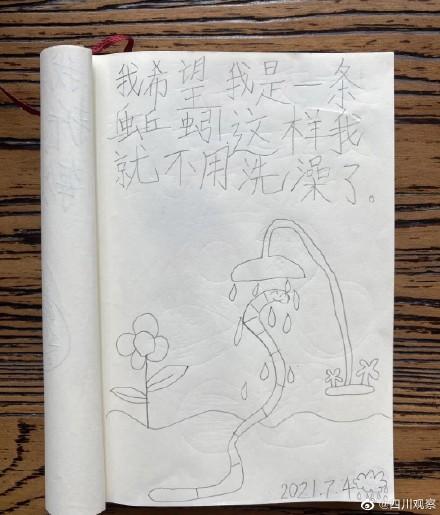 我希望我是一条
蚯蚓这样我
就不用洗澡了。
2021.7.4
@四川观察